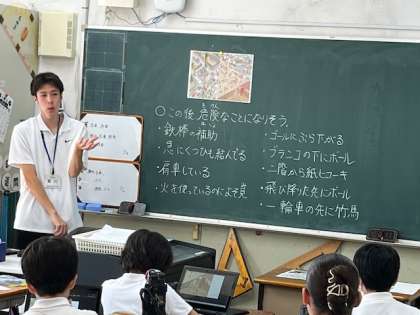 ○この後危険なことになりそう。
・鉄棒の補助
・急にくつひも結んでる
・肩車している
・火を使っているのによそ見
・ゴールにぶら下がる
・ブランコの下にボール
・二階から紙ヒコーキ
・飛び降りた先にボール
・一輪車の先に竹馬